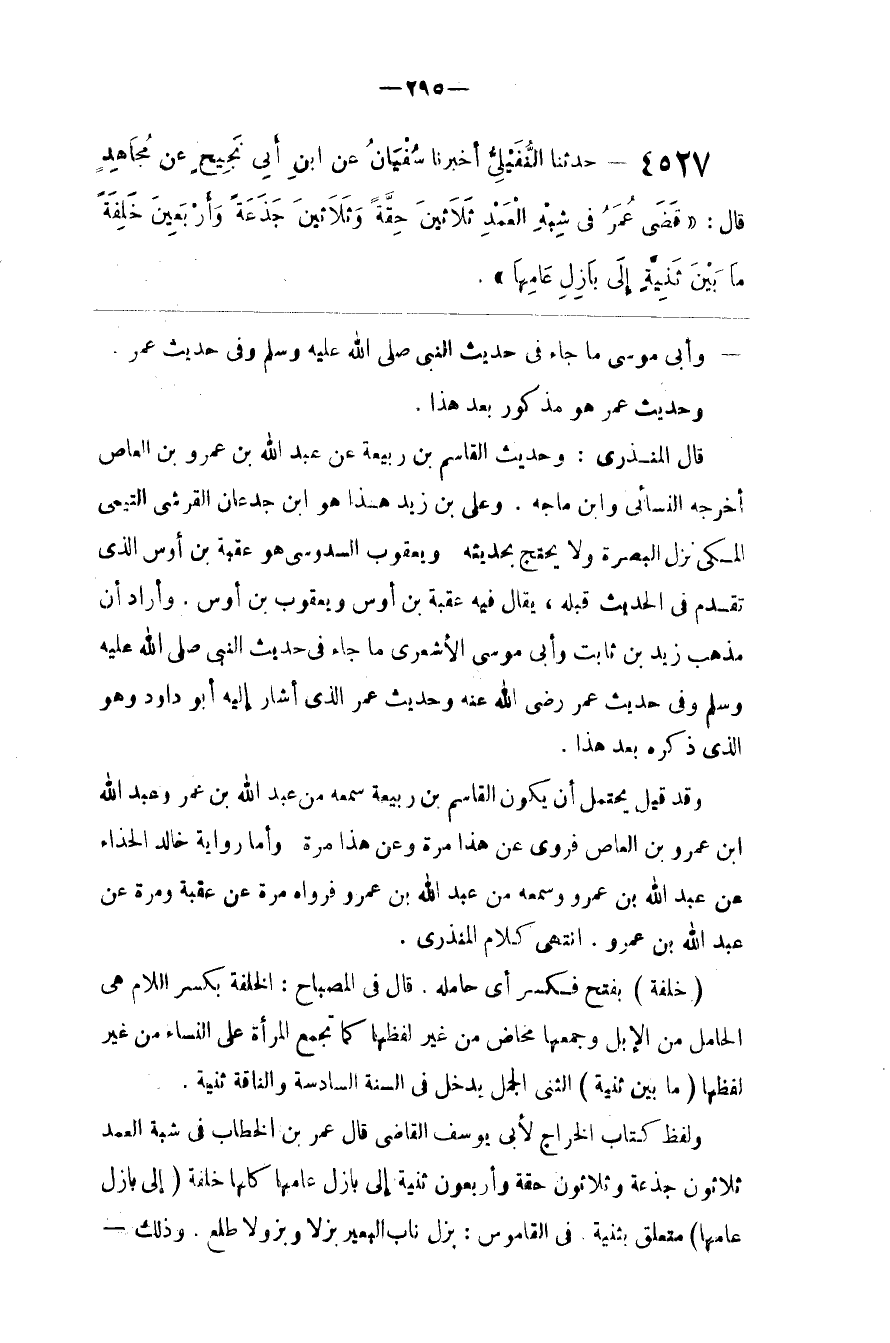 —٢٩٥—
٤٥٢٧ — حدثنا النُّفَيْلِىُّ أخبرنا سُفْيَانُ عن ابنِ أبى نَجِيحٍ عن مُجَاهِدٍ
قال : « قَضَى عُمَرُ فى شِبْهِ الْعَمْدِ ثَلَاثينَ حِقَّةً وَثَلَاثينَ جَذَعَةً وَأَرْبَعِينَ خَلِفَةً
مَا بَيْنَ ثَنِيَّةٍ إِلَى بَازِلِ عَامِهَا » .
— وأبى موسى ما جاء فى حديث النبى صلى الله عليه وسلم وفى حديث عمر .
وحديث عمر هو مذكور بعد هذا .
قال المنـذرى : وحديث القاسم بن ربيعة عن عبد الله بن عمرو بن العاص
أخرجه النسائى وابن ماجه . وعلى بن زيد هـذا هو ابن جدعان القرشى التيمى
المـكى نزل البصرة ولا يحتج بحديثه ويعقوب السدوسى هو عقبة بن أوس الذى
تقـدم فى الحديث قبله ، يقال فيه عقبة بن أوس ويعقوب بن أوس . وأراد أن
مذهب زيد بن ثابت وأبى موسى الأشعرى ما جاء فى حديث النبى صلى الله عليه
وسلم وفى حديث عمر رضى الله عنه وحديث عمر الذى أشار إليه أبو داود وهو
الذى ذكره بعد هذا .
وقد قيل يحتمل أن يكون القاسم بن ربيعة سمعه من عبد الله بن عمر وعبد الله
ابن عمرو بن العاص فروى عن هذا مرة وعن هذا مرة وأما رواية خالد الحذاء
عن عبد الله بن عمرو وسمعه من عبد الله بن عمرو فرواه مرة عن عقبة ومرة عن
عبد الله بن عمرو . انتهى كلام المنذرى .
( خلفة ) بفتح فـكسر أى حامله . قال فى المصباح : الخلفة بكسر اللام هى
الحامل من الإبل وجمعها مخاض من غير لفظها كما تجمع المرأة على النساء من غير
لفظها ( ما بين ثنية ) الثنى الجمل يدخل فى السنة السادسة والناقة ثنية .
ولفظ كتاب الخراج لأبى يوسف القاضى قال عمر بن الخطاب فى شبة العمد
ثلاثون جذعة وثلاثون حقة وأربعون ثنية إلى بازل عامها كلها خلفة ( إلى بازل
عامها) متعلق بثنية . فى القاموس : بزل ناب البعير بزلا وبزولا طلع . وذلك —